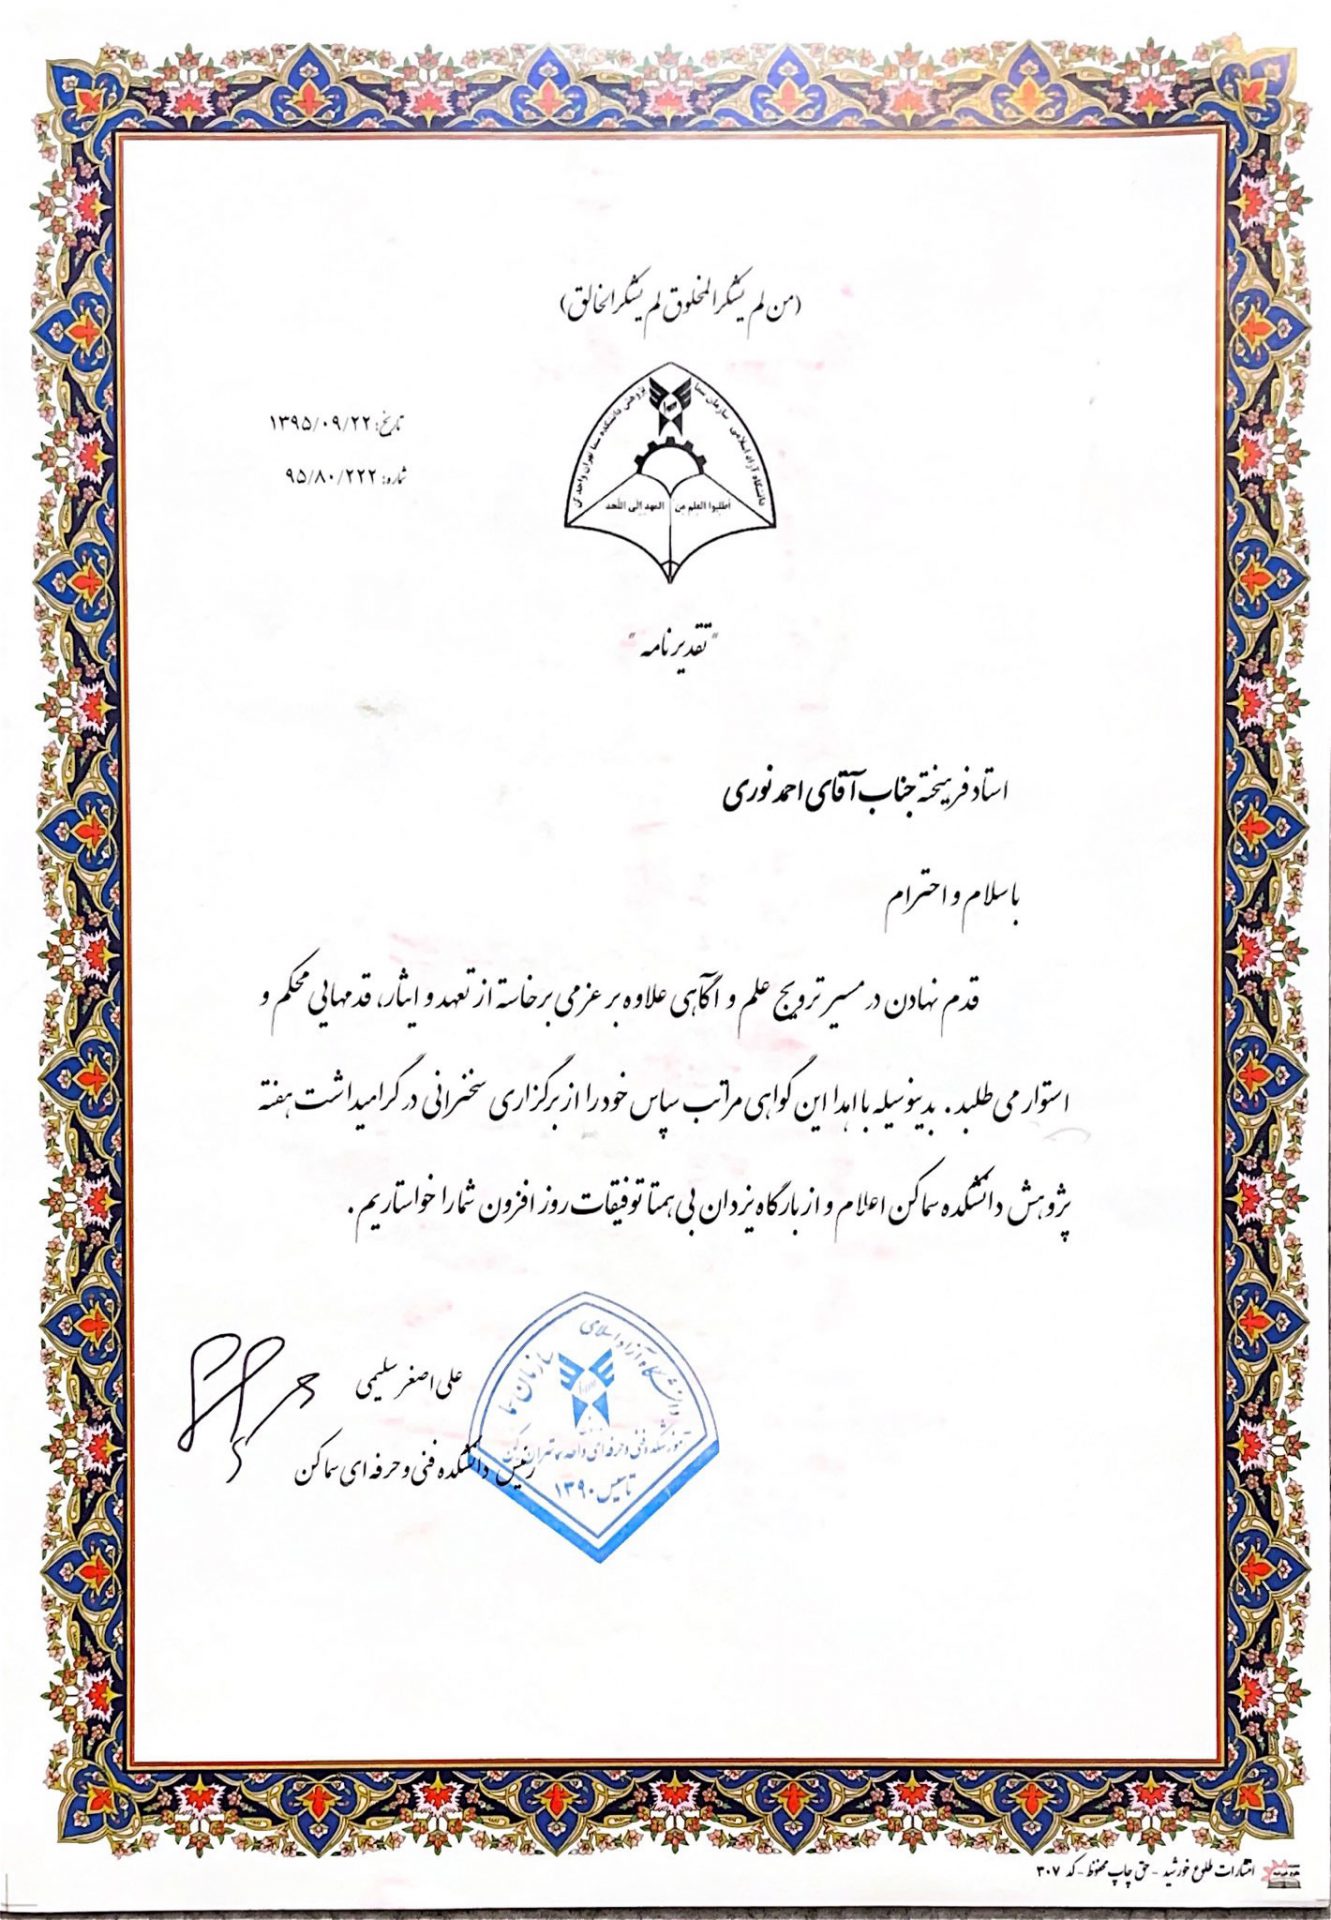 (من لم یشکر المخلوق لم یشکر الخالق)
دانشگاه آزاد اسلامی سازمان سما پژوهش دانشکده سما تهران واحد کن
اطلبوا العلم من المهد إلی اللحد
تاریخ: ۱۳۹۵/۰۹/۲۲
شماره: ۹۵/۸۰/۲۲۲
"تقدیرنامه"
استاد فرهیخته جناب آقای احمد نوری
با سلام و احترام
قدم نهادن در مسیر ترویج علم و آگاهی علاوه بر عزمی برخاسته از تعهد و ایثار، قدمهایی محکم و
استوار می طلبد. بدینوسیله با اهدا این گواهی مراتب سپاس خود را از برگزاری سخنرانی در گرامیداشت هفته
پژوهش دانشکده سما کن اعلام و از بارگاه یزدان بی همتا توفیقات روز افزون شما را خواستاریم.
علی اصغر سلیمی
رئیس دانشکده فنی و حرفه ای سما کن
دانشگاه آزاد اسلامی
سازمان سما
آموزشکده فنی و حرفه ای واحد سما تهران کن
تاسیس ۱۳۹۰
انتشارات طلوع خورشید - حق چاپ محفوظ - کد ۳۰۷